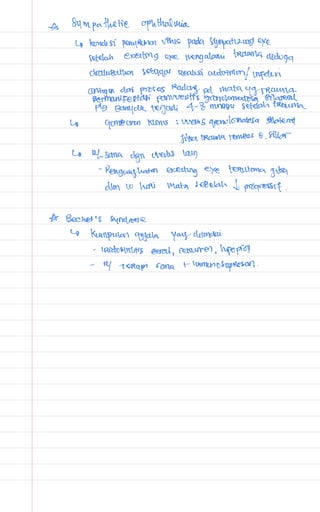 ☆ Sympathetic ophthalmia
↳ kondisi peradangan uveas pada sympatizing eye
setelah exciting eye mengalami trauma diduga
disebabkan sebagai reaksi autoimun/ infeksi
dari proses Radang pd mata yg trauma.
Bermanifestasi panuveitis granulomatosa bilateral
Plg banyak terjadi 4-8 minggu setelah trauma
↳ gambaran klinis : uveitis granulomatosa bilateral
jika trauma tembus
↳ R/ sama dgn uveitis lain
- Pengangkatan exciting eye terutama jika
dlm 10 hari mata sebelah ↓ progresif
☆ Bechet's syndrome
↳ Kumpulan gejala yang ditandai
- oral, hipopion
- R/ terapi sama + immunosupresan.